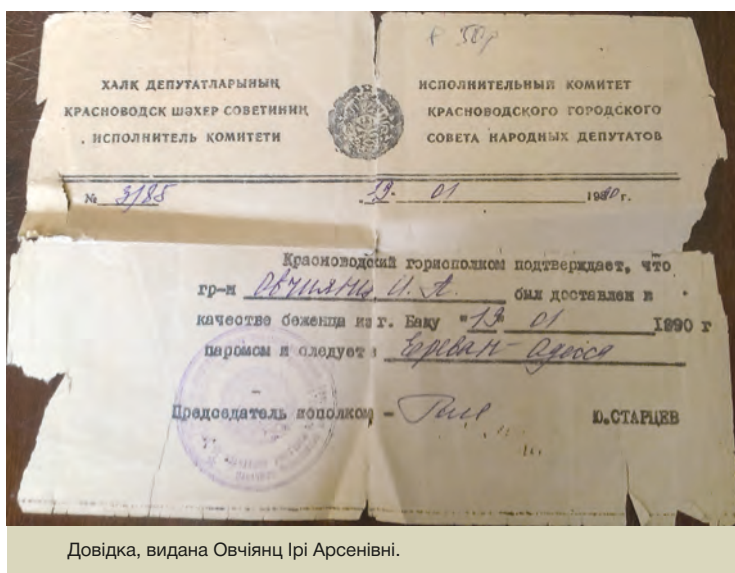 Р 50р
ХАЛК ДЕПУТАТЛАРЫНЫҢ
КРАСНОВОДСК ШӘХЕР СОВЕТИНИҢ
ИСПОЛНИТЕЛЬ КОМИТЕТИ
ИСПОЛНИТЕЛЬНЫЙ КОМИТЕТ
КРАСНОВОДСКОГО ГОРОДСКОГО
СОВЕТА НАРОДНЫХ ДЕПУТАТОВ
№ 3/85 "19" 01 1990 г.
Красноводский горисполком подтверждает, что
гр-н Овчиянц И. А. был доставлен в
качестве беженца из г. Баку "19" 01 1990 г
паромом и следует в Ереван - Одесса
Председатель исполком - Ю.СТАРЦЕВ
Довідка, видана Овчіянц Ірі Арсенівні.